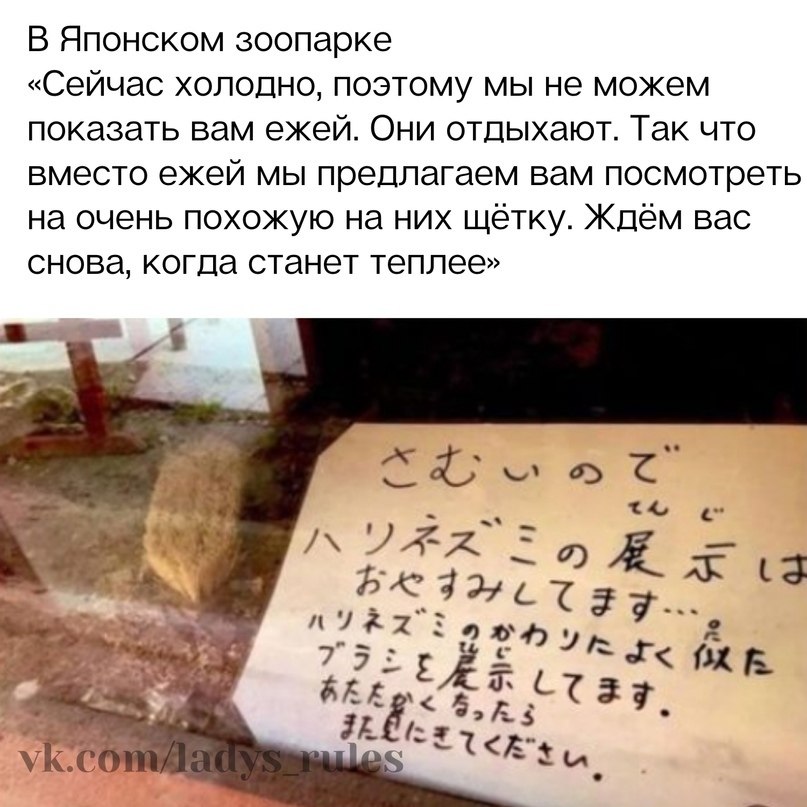 В Японском зоопарке
«Сейчас холодно, поэтому мы не можем
показать вам ежей. Они отдыхают. Так что
вместо ежей мы предлагаем вам посмотреть
на очень похожую на них щётку. Ждём вас
снова, когда станет теплее»
さむいので
てんじ
ハリネズミの展示は
おやすみしてます…
に
ハリネズミのかわりによく似た
てんじ
ブラシを展示してます。
あたたかくなったら
また見にきてください。
vk.com/ladys_rules